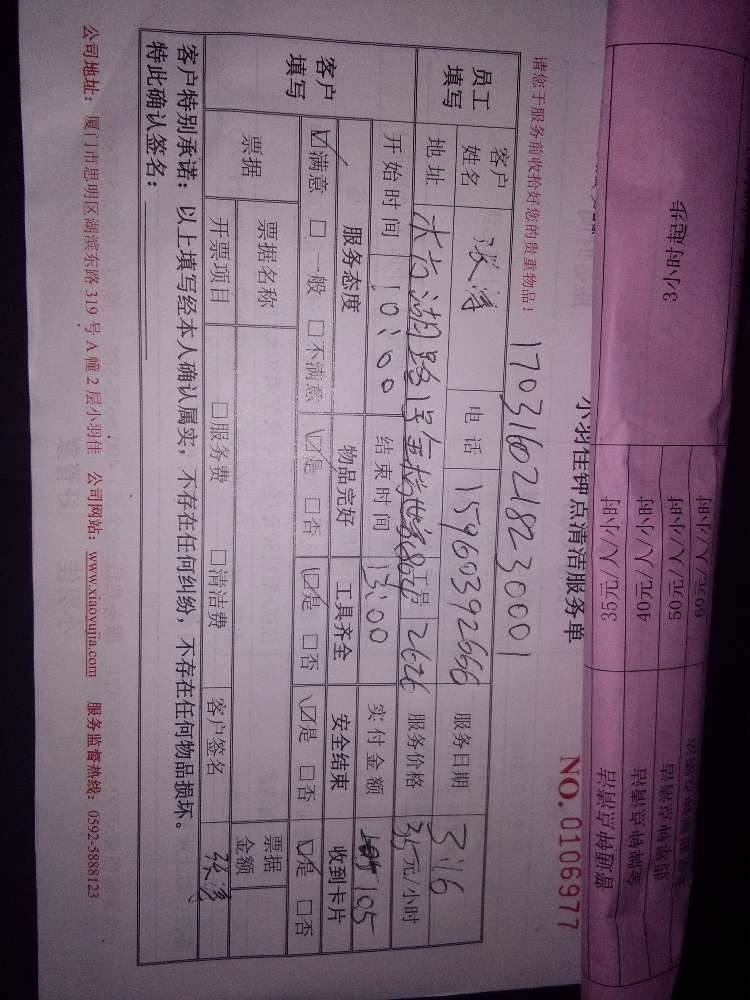 小羽佳钟点清洁服务单
NO. 0106977
1703160218230001
请您于服务前收拾好您的贵重物品！
员工填写
客户姓名
电话 15960392666
服务日期 3.16
地址
工号 2626
服务价格 35元/小时
开始时间 10:00
结束时间 13:00
实付金额 105
客户填写
服务态度 物品完好 工具齐全 安全结束 收到卡片
☑满意 □一般 □不满意 ☑是 □否 ☑是 □否 ☑是 □否 ☑是 □否
票据
票据名称
票据金额
开票项目 □服务费 □清洁费 客户签名
客户特别承诺：以上填写经本人确认属实，不存在任何纠纷，不存在任何物品损坏。
特此确认签名：
公司地址：厦门市思明区湖滨东路 319 号 A 幢 2 层小羽佳 公司网站：www.xiaoyujia.com 服务监督热线：0592-5888123
3小时起
35元/人/小时
40元/人/小时
50元/人/小时
60元/人/小时